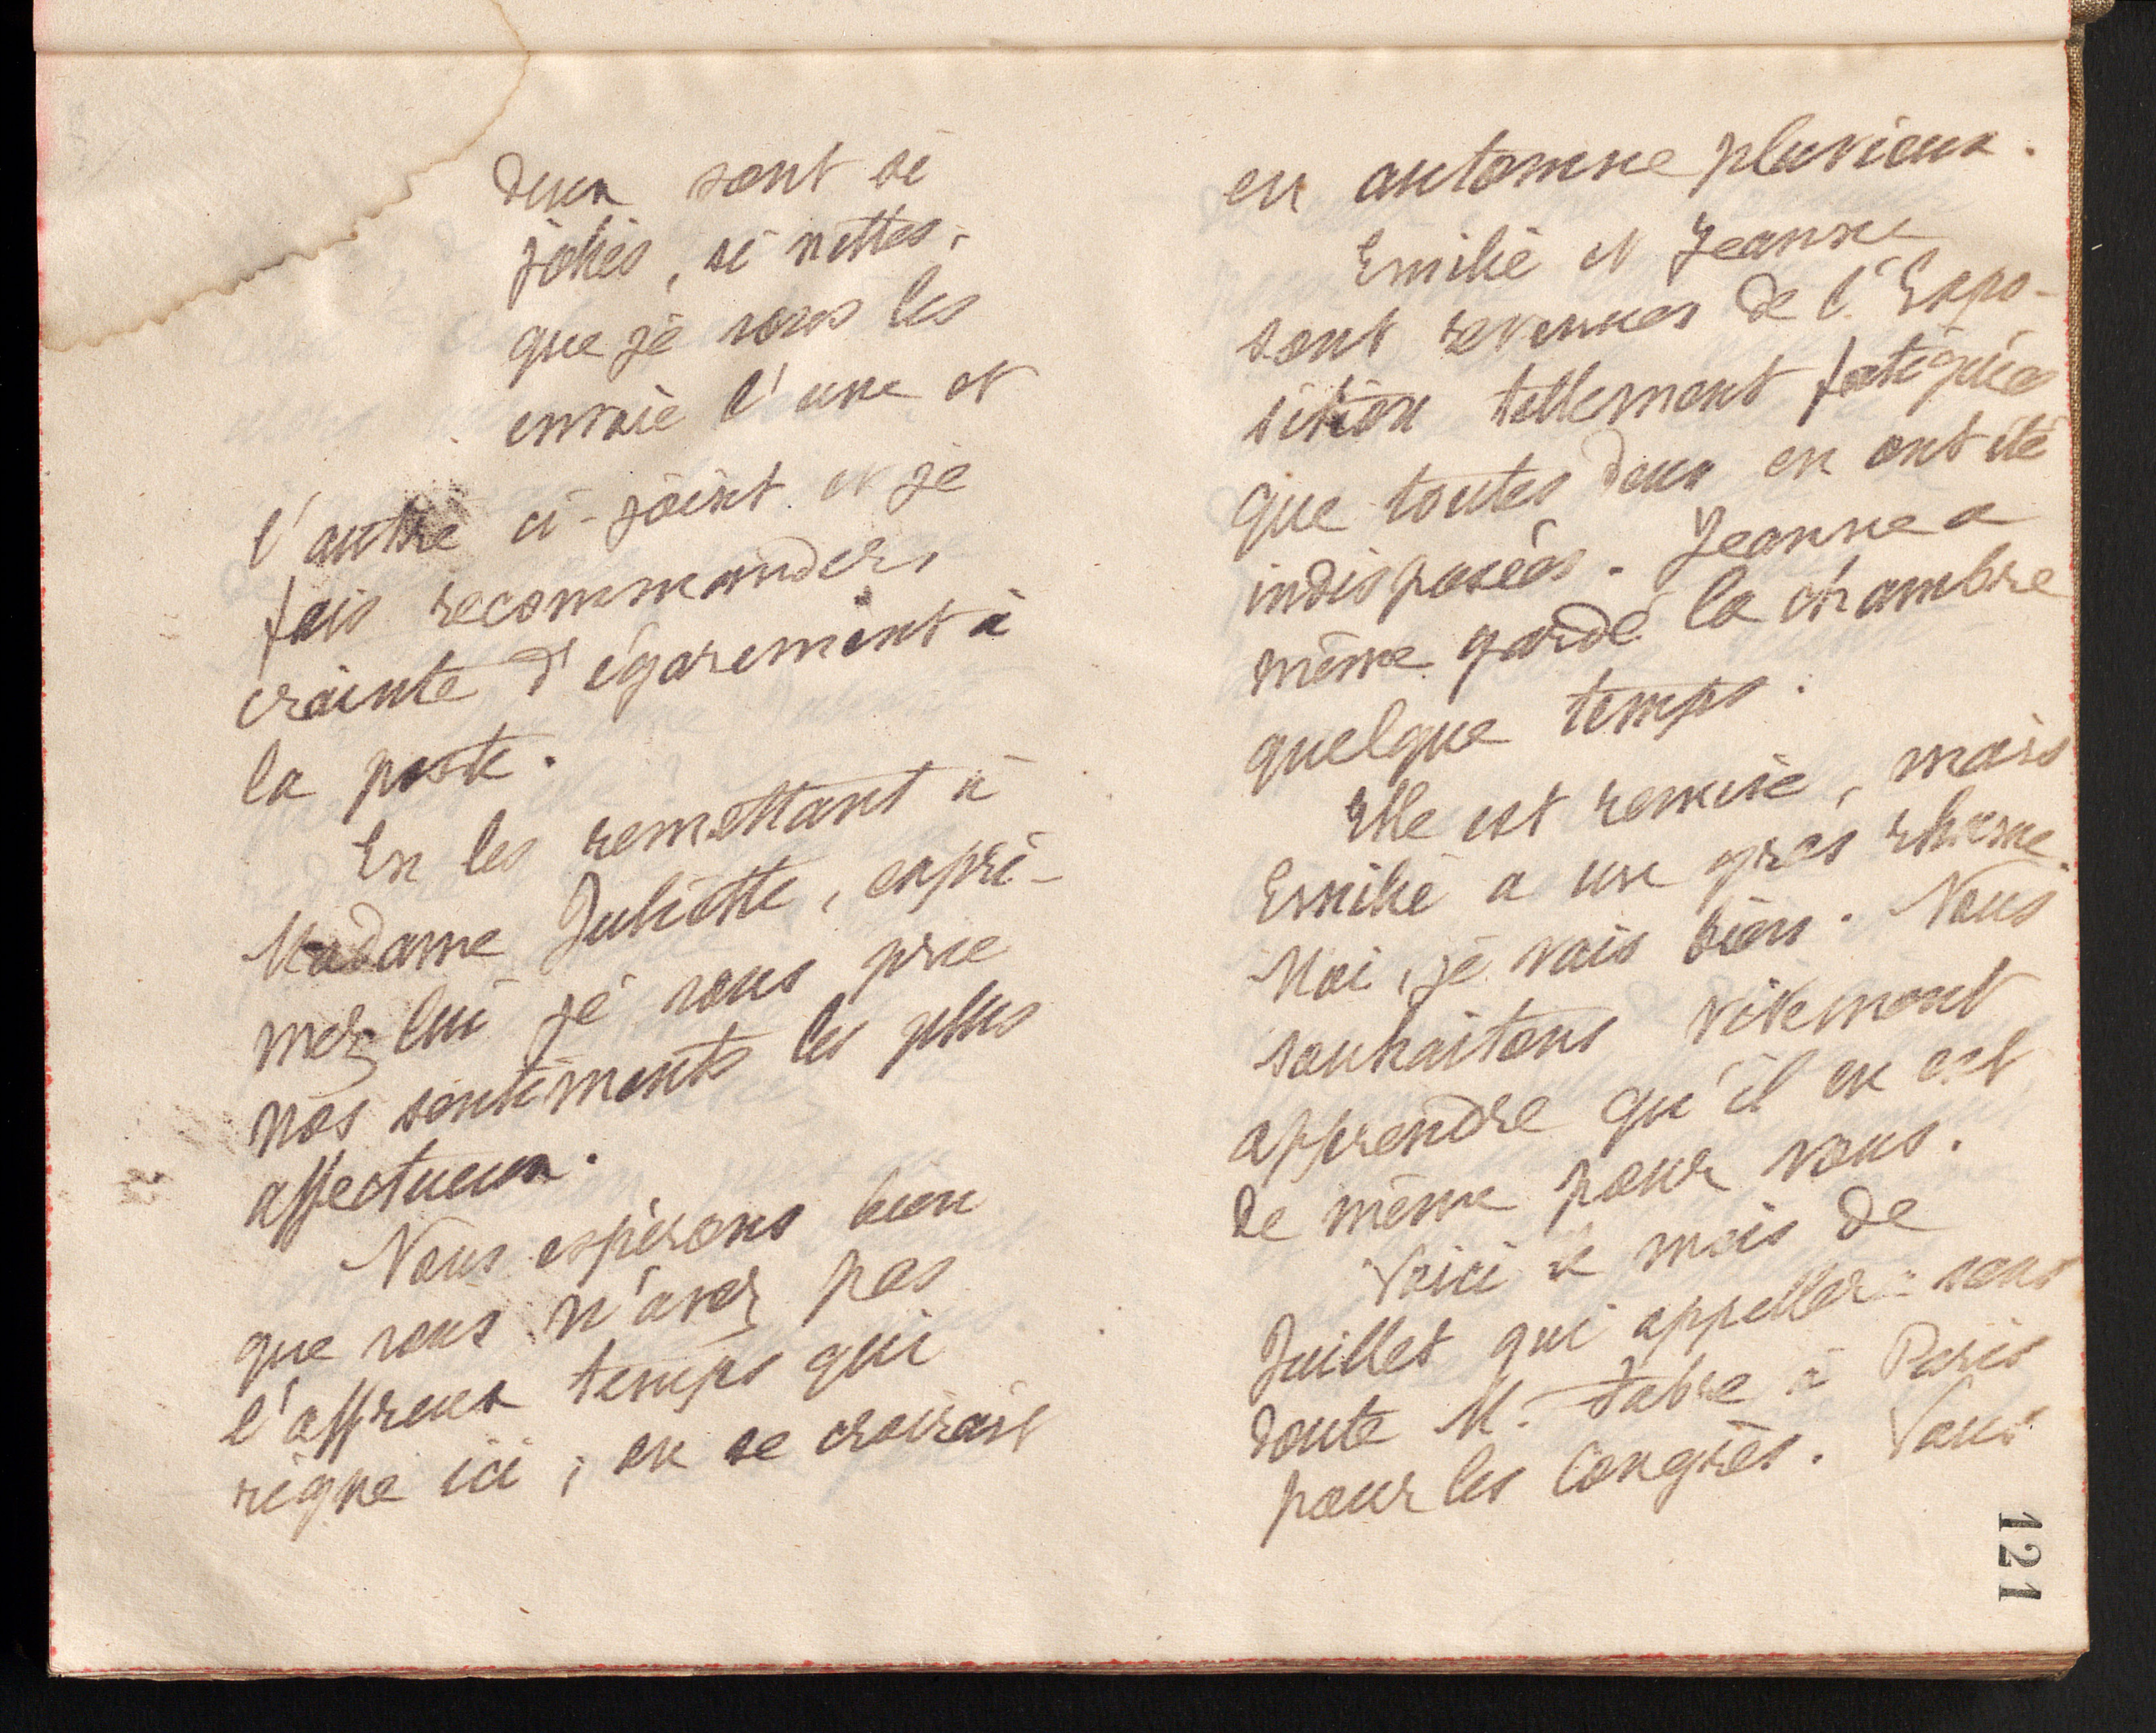 deux sont si
jolies, si nettes,
que je vous les
envoie l'une et
l'autre ci-joint et je
fais recommander,
crainte d'égarement à
la poste.
En les remettant à
Madame Juliette, expri-
mez lui je vous prie
nos sentiments les plus
affectueux.
Nous espérons bien
que vous n'avez pas
l'affreux temps qui
règne ici ; on se croirait
en automne pluvieux.
Emilie et Jeanne
sont revenues de l'Expo-
sition tellement fatiguées
que toutes deux en ont été
indisposées. Jeanne a
même gardé la chambre
quelque temps.
Elle est remise, mais
Emilie a un gros rhume.
Moi, je vais bien. Nous
souhaitons vivement
apprendre qu'il en est
de même pour vous.
Voici le mois de
Juillet qui appellera sans
doute M. Fabre à Paris
pour les Congrès. Vous
121